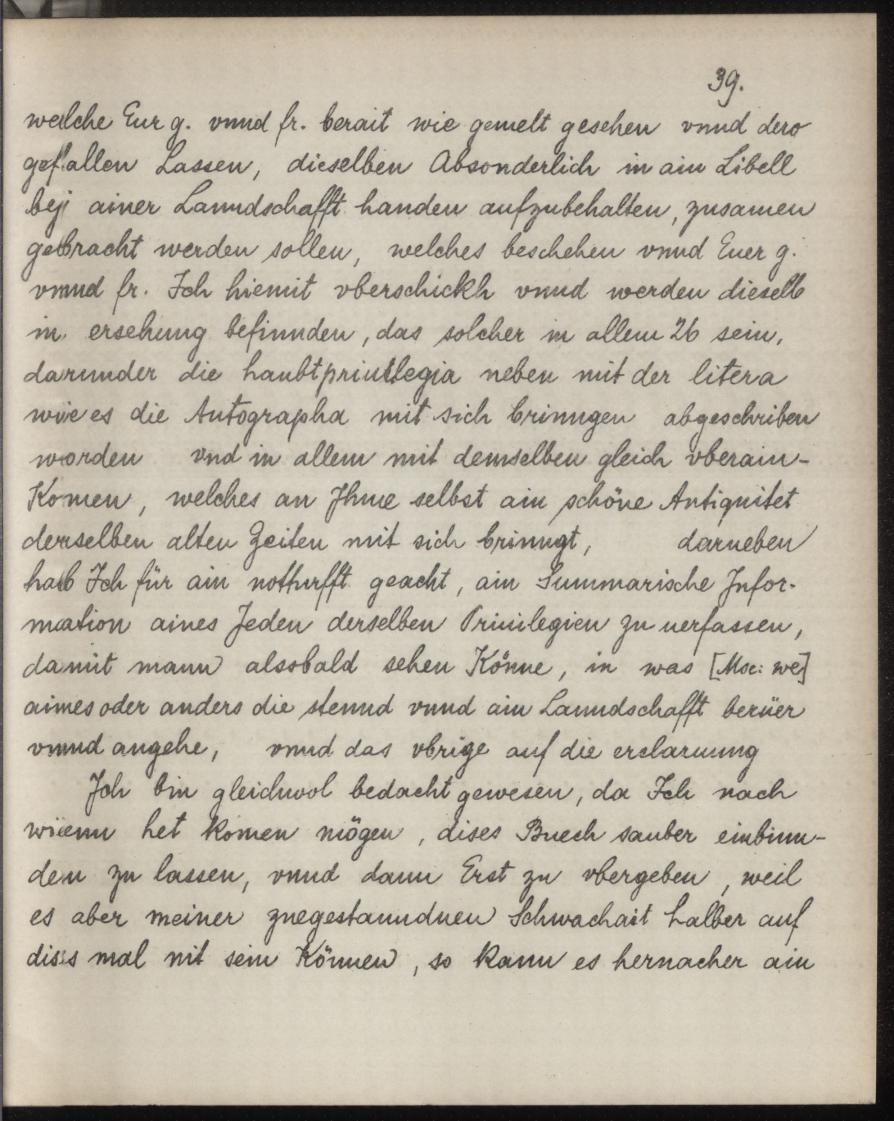 39.
welche Eur g. vnnd fr. berait wie gemelt gesehen vnnd dero
gefallen Lassen, dieselben Absonderlich in ain Libell
bej ainer Lanndschafft handen aufzubehalten, zusamen
gebracht werden sollen, welches beschehen vnnd Euer g.
vnnd fr. Ich hiemit vberschickh vnnd werden dieselb
in ersehung befinnden, das solcher in allem 26 sein,
darunder die haubtpriuilegia neben mit der litera
wie es die Autographa mit sich brinngen abgeschriben
worden vnd in allem mit demselben gleich vberain-
Komen, welches an Jhme selbst ain schöne Antiquitet
derselben alten Zeiten mit sich brinngt, darneben
hab Ich für ain notturfft geacht, ain Summarische Infor-
mation aines Jeden derselben Priuilegien zu uerfassen,
damit mann alsobald sehen Könne, in was [Msc: we]
aimes oder anders die stennd vnnd ain Lanndschafft berüer
vnnd angehe, vnnd das vbrige auf die erclarung
Ich bin gleichwol bedacht gewesen, da Ich nach
wienn het komen mögen, dises Buech sauber einbinn-
den zu lassen, vnnd dann Erst zu vbergeben, weil
es aber meiner zuegestanndnen Schwachait halber auf
diss mal nit sein Können, so kann es hernacher ain